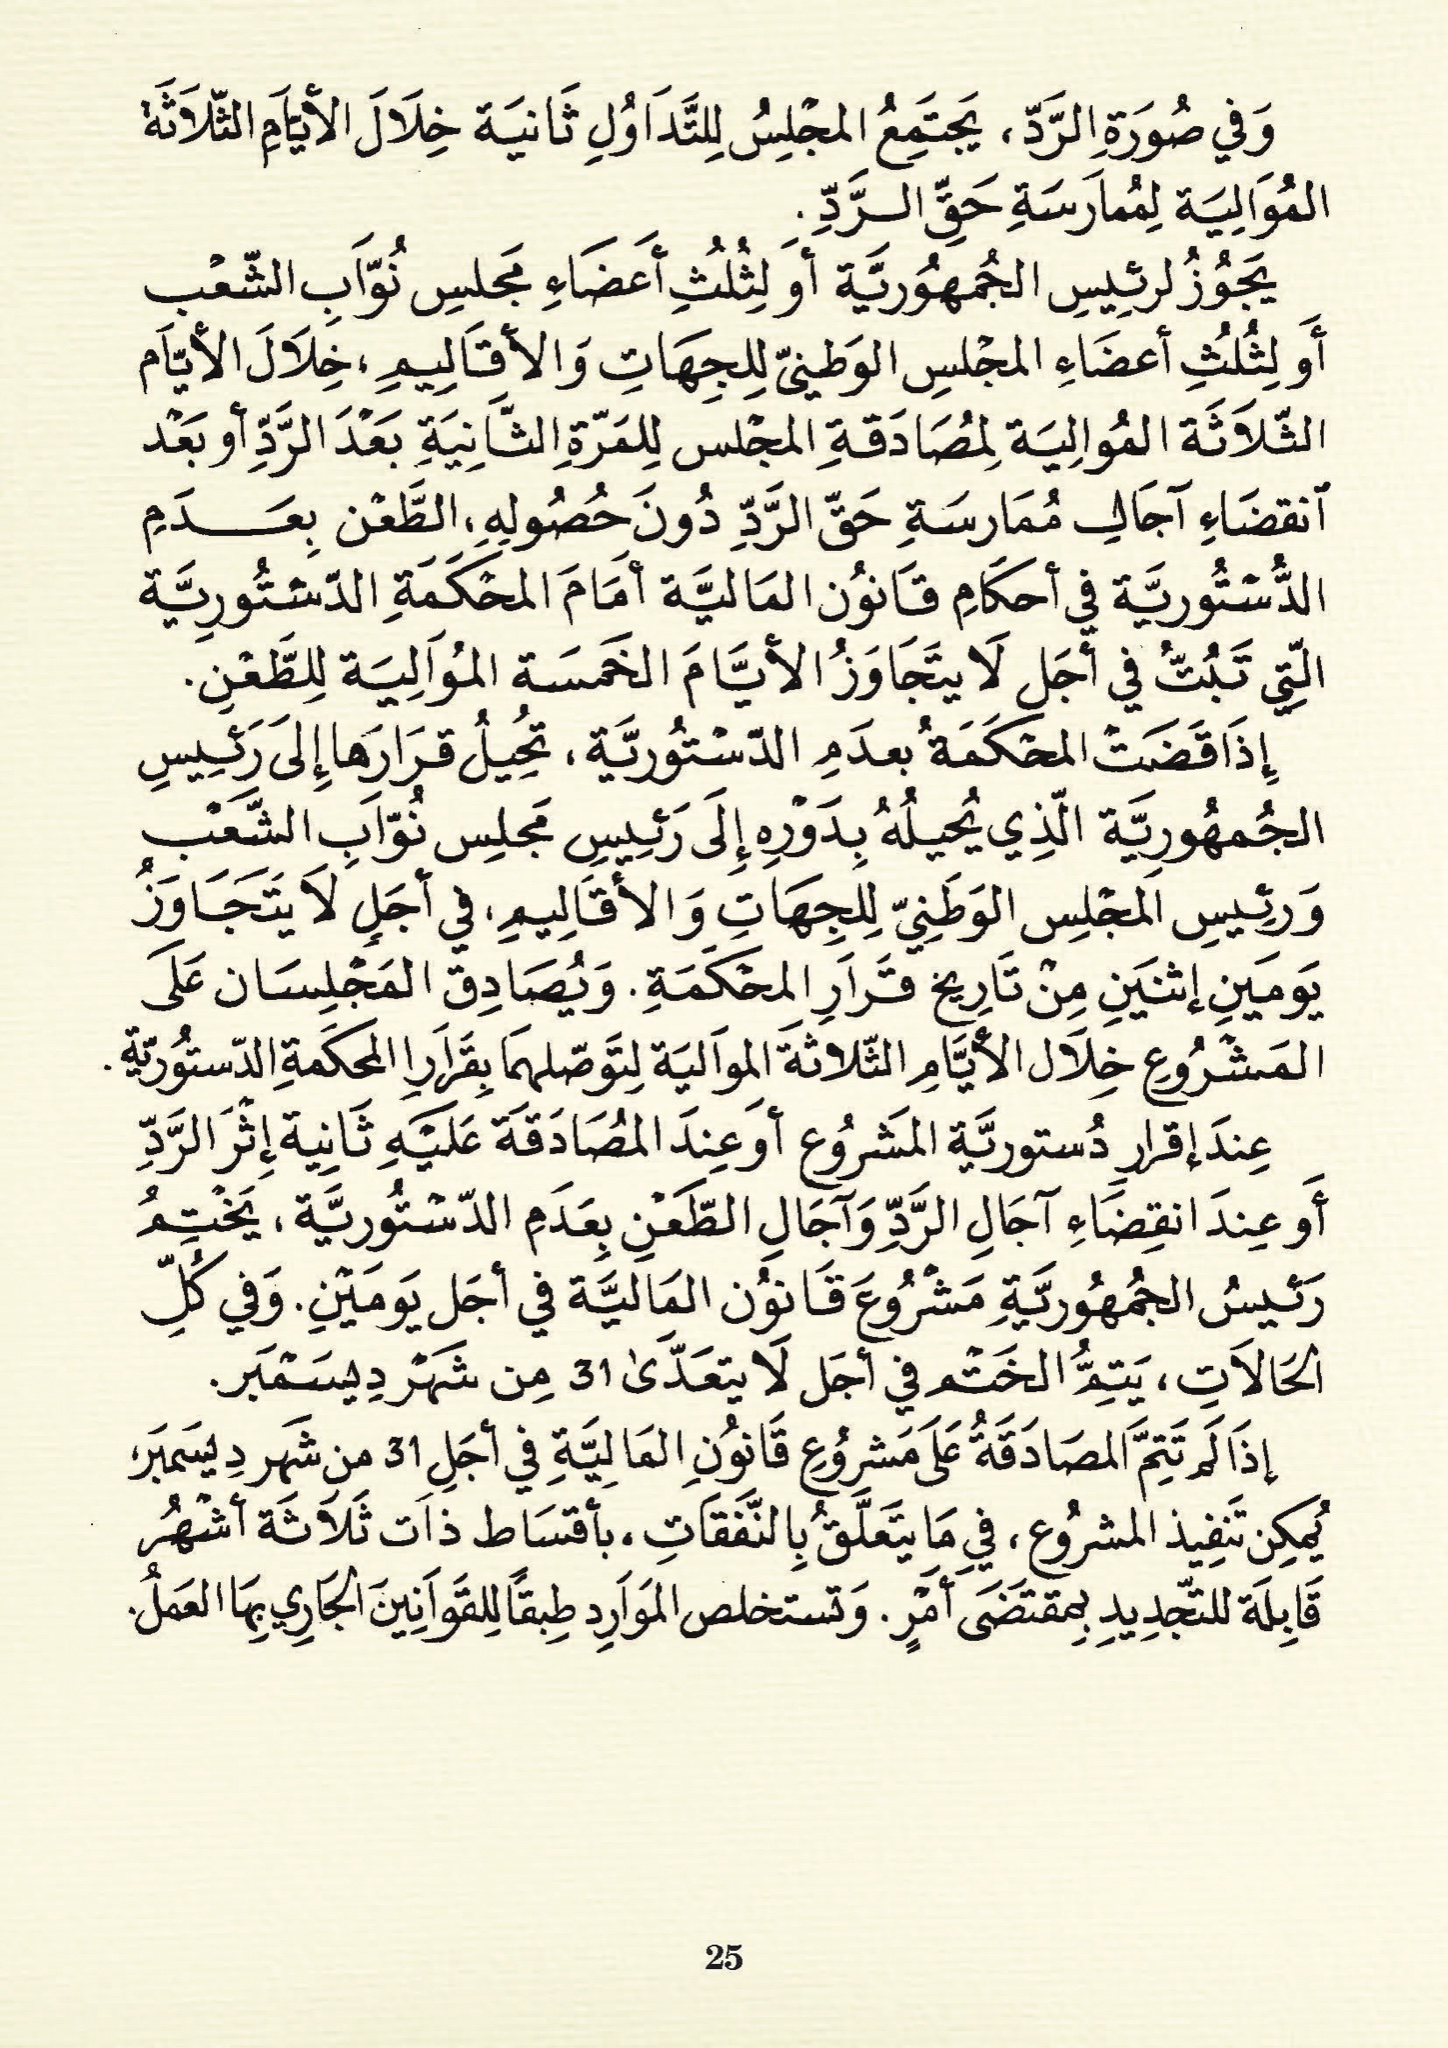 وَفي صُورَةِ الرَّدّ، يَجتَمِعُ المجْلِسُ لِلتَّدَاوُلِ ثَانيَة خِلَالَ الأيّامِ الثّلَاثَة
المُوَالِيَة لِمُمارَسَةِ حَقِّ الرَّدِّ.
يَجُوُزُ لرئِيسِ الجُمهُوريَّة أو لِثُلُثِ أَعضَاءِ مَجلسِ نُوّابِ الشّعْب
أَو لِثُلُثِ أعضَاءِ المجْلسِ الوَطنيّ لِلجِهَاتِ وَالأقَالِيمِ، خِلَالَ الأيّام
الثّلاَثَة المُوالِيَة لِمصَادَقةِ المجْلس لِلمَرّةِ الثَّانِيَةِ بَعْدَ الرَّدِّ أو بَعْد
ٱنقضَاءِ آجَالِ مُمَارسَةِ حَقّ الرَّدِّ دُونَ حُصُولِهِ، الطَّعْن بِعَدَمِ
الدُّسْتُوريَّة في أحكَامِ قَانوُن المَاليَّة أمَامَ المحْكَمَةِ الدّسْتُورِيَّة
الّتِي تَبُتُّ في أجَل لَا يتَجَاوَزُ الأيَّامَ الخَمسَة المُوَالِيَة لِلطَّعْنِ.
إِذَا قَضَتْ المحْكَمَةُ بعدَمِ الدّسْتُوريَّة، تحُيلُ قرَارَها إِلىَ رَئِيسِ
الجُمهُورِيَّة الّذِي يُحيلُهُ بِدَوْرِهِ إِلَى رَئِيسِ مَجلِس نُوّابِ الشَّعْب
وَرئِيسِ المجْلِس الوَطَنِيّ لِلجِهَاتِ وَالأقَالِيمِ، في أجَلٍ لَا يتَجَاوَزُ
يَومَينِ إثنَينِ مِنْ تَارِيخ قَرَارِ المحْكَمَةِ. وَيُصَادِق المَجْلِسَان عَلَى
المَشْرُوعِ خِلَال الأيَّامِ الثّلاثَة الموَاليَة لِتَوصّلهمَا بِقَرَارِ المحكَمةِ الدّستوُريّة.
عِندَ إقرارِ دُستوريَّة المَشرُوع أو عِندَ المصُادَقَة عَلَيْهِ ثَانِية إِثْرَ الرَّدِّ
أَو عِندَ انقِضَاءِ آجَالِ الرَّدِّ وَآجَالِ الطّعْنِ بِعَدَمِ الدّسْتُوريَّة، يَخْتِمُ
رَئيسُ الجُمهُوريَّةِ مَشْرُوعَ قَانوُن المَاليَّة في أجَل يَومَيْنِ. وَفي كُلِّ
الحَالاَتِ، يَتِمُّ الخَتْم في أجَل لَا يتعَدَّىٰ 31 مِن شَهْر دِيسَمْبَر.
إذَا لَم تَتِمَّ المصَادَقَةُ عَلَى مَشرُوعِ قَانوُنِ المَالِيَّةِ في أجَلِ 31 من شَهر دِيسَمبَر،
يُمكِن تَنفِيذ المشرُوع، في مَا يتَعَلَّقُ بِالنّفَقَاتِ، بأقسَاط ذات ثَلاَثَة أشْهُر
قَابِلَة للتّجْدِيدِ بمِقتَضَى أَمْرٍ. وَتستخلص المَوَارِد طِبقًا لِلقَوَانِينَ الجَارِي بِهَا العَمَلُ.
25